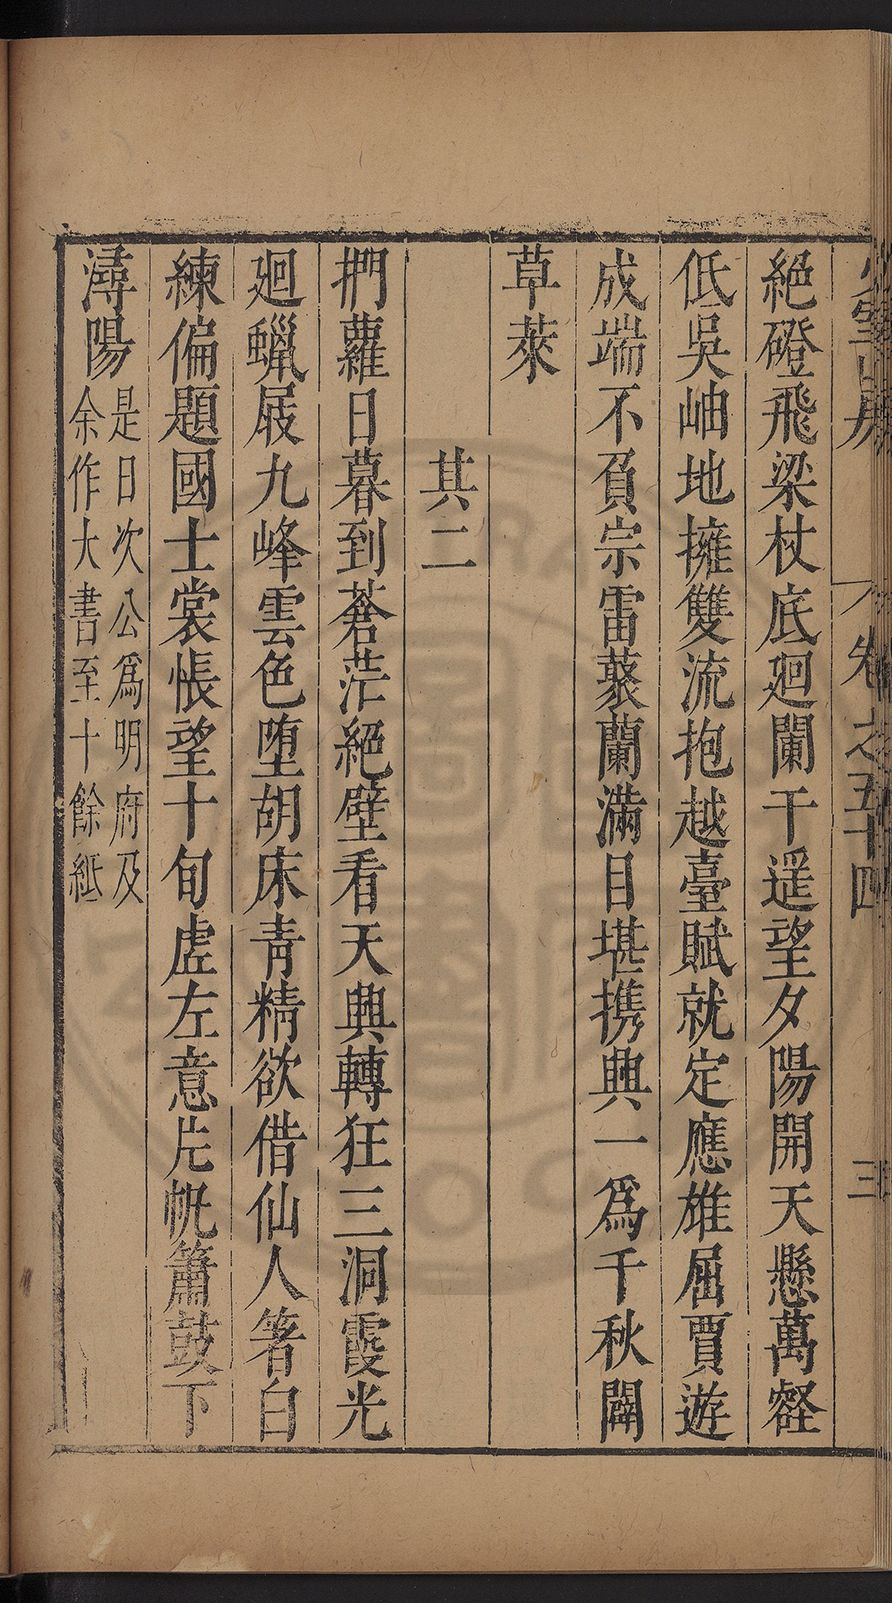 絕磴飛梁杖底廻闌干遥望夕陽開天懸萬壑
低吳岫地擁雙流抱越臺賦就定應雄屈賈遊
成端不負宗雷蒃蘭滿目堪携興一爲千秋闢
草萊
其二
捫蘿日暮到蒼茫絕壁看天興轉狂三洞霞光
廻蠟屐九峰雲色墮胡床青精欲借仙人箸白
練偏題國士裳悵望十旬虛左意片帆簫鼓下
潯陽
是日次公爲明府及
余作大書至十餘紙
卷之五十四
三